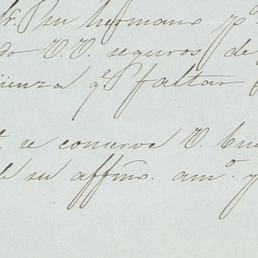 su hermano p.
do V.V. seguros de
üenza q.e faltar
se conserva V. bue
su affmo. am.o y